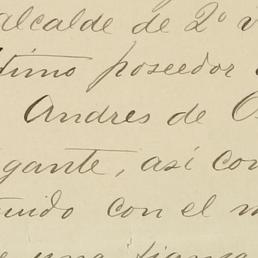 alcalde de 2º v
timo poseedor
Andres de O
gante, así con
uido con el m
e una fianza